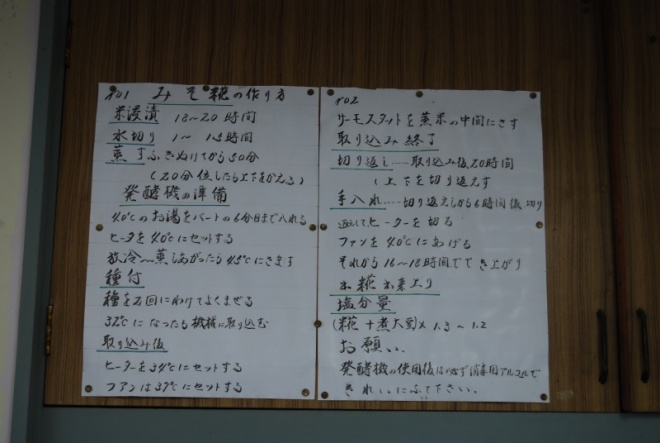 No1 みそ糀の作り方
米浸漬 18〜20時間
水切り 1〜1.5時間
蒸す ふきぬけてから50分
(20分位したら上下をかえる)
発酵機の準備
40℃のお湯をバートの6分目まで入れる
ヒータを40℃にセットする
放冷〜蒸し上がったら45℃にさます
種付
種を2回にわけてよくまぜる
32℃になったら機械に取り込む
取り込み後
ヒーターを34℃にセットする
ファンは37℃にセットする
No2
サーモスタットを蒸米の中間にさす
取り込み終了
切り返し....取り込み後20時間
(上下を切り返えす
手入れ....切り返えしから6時間後切り
返してヒーターを切る
ファンを40℃にあげる
それから16〜18時間ででき上がり
糀出来上り
塩分量
(糀+煮大豆)× 1.3〜1.2
お願い
発酵機の使用後は必ず消毒用アルコルで
きれいにふて下さい。